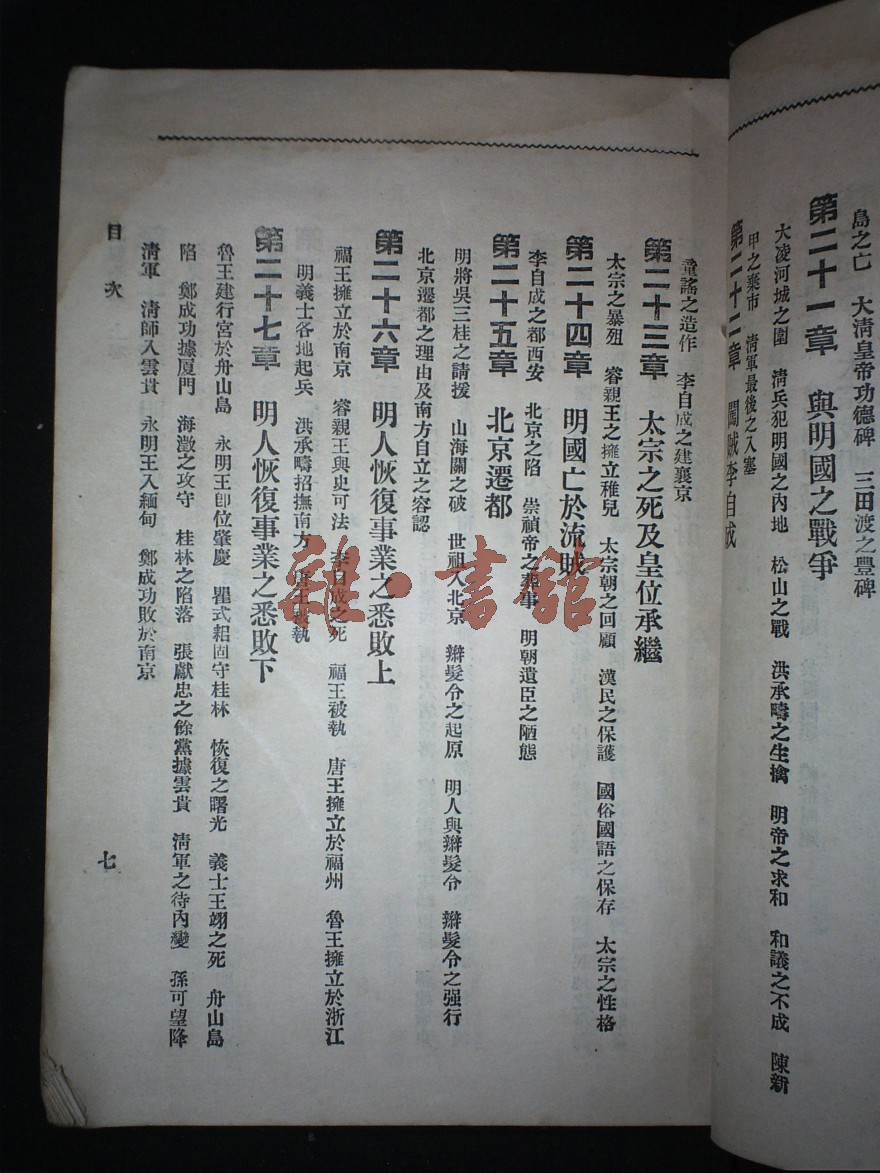 島之亡　大淸皇帝功德碑　三田渡之豐碑
第二十一章　與明國之戰爭
大凌河城之圍　淸兵犯明國之內地　松山之戰　洪承疇之生擒　明帝之求和　和議之不成　陳新
甲之棄市　淸軍最後之入塞
第二十二章　闖賊李自成
童謠之造作　李自成之建襄京
第二十三章　太宗之死及皇位承繼
太宗之暴殂　睿親王之擁立稚兒　太宗朝之回顧　漢民之保護　國俗國語之保存　太宗之性格
第二十四章　明國亡於流賊
李自成之都西安　北京之陷　崇禎帝之葬事　明朝遺臣之陋態
第二十五章　北京遷都
明將吳三桂之請援　山海關之破　世祖入北京　辮髮令之起原　明人與辮髮令　辮髮令之强行
北京遷都之理由及南方自立之容認
第二十六章　明人恢復事業之悉敗上
福王擁立於南京　睿親王與史可法　李自成之死　福王被執　唐王擁立於福州　魯王擁立於浙江
明義士各地起兵　洪承疇招撫南方　唐王被執
第二十七章　明人恢復事業之悉敗下
魯王建行宮於舟山島　永明王卽位肇慶　瞿式耜固守桂林　恢復之曙光　義士王翊之死　舟山島
陷　鄭成功據厦門　海澂之攻守　桂林之陷落　張獻忠之餘黨據雲貴　淸軍之待內變　孫可望降
淸軍　淸師入雲貴　永明王入緬甸　鄭成功敗於南京
目次
七
雜·書館